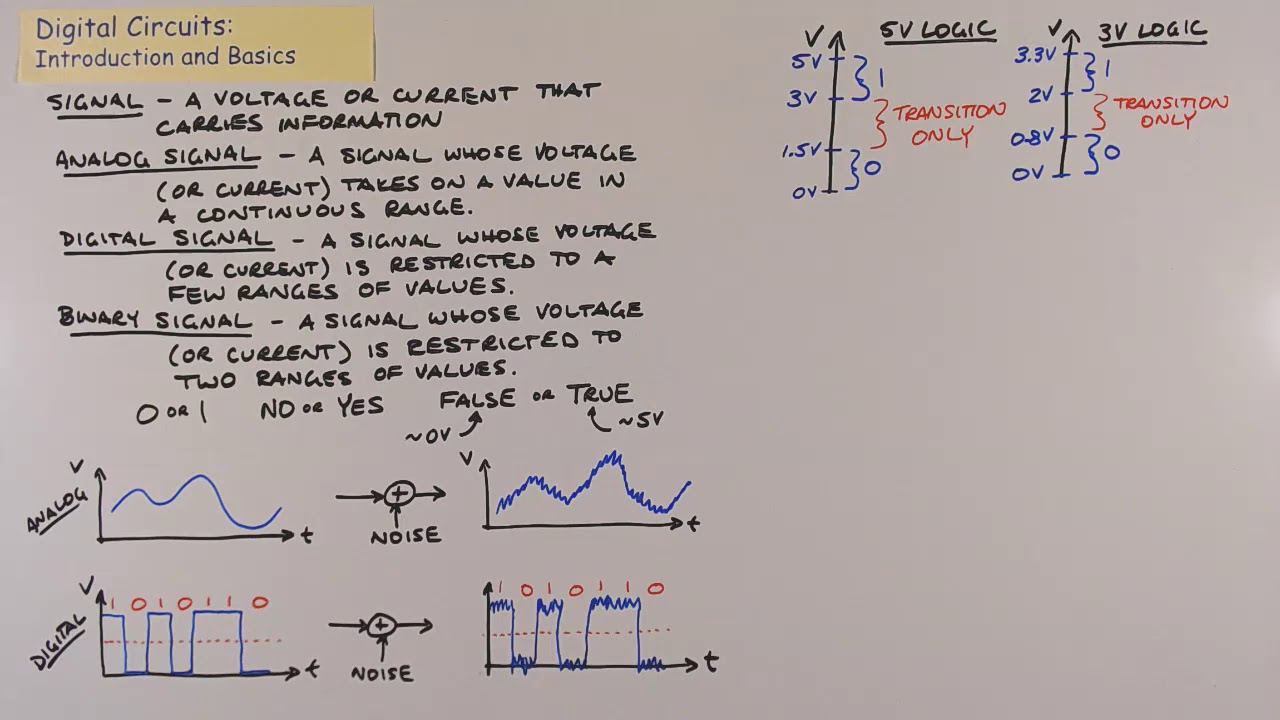 Digital Circuits:
Introduction and Basics
SIGNAL - A VOLTAGE OR CURRENT THAT
CARRIES INFORMATION
ANALOG SIGNAL - A SIGNAL WHOSE VOLTAGE
(OR CURRENT) TAKES ON A VALUE IN
A CONTINUOUS RANGE.
DIGITAL SIGNAL - A SIGNAL WHOSE VOLTAGE
(OR CURRENT) IS RESTRICTED TO A
FEW RANGES OF VALUES.
BINARY SIGNAL - A SIGNAL WHOSE VOLTAGE
(OR CURRENT) IS RESTRICTED TO
TWO RANGES OF VALUES.
0 OR 1 NO OR YES FALSE OR TRUE
~0V ~5V
ANALOG
V
t
NOISE
V
t
DIGITAL
V
1 0 1 0 1 1 0
t
NOISE
1 0 1 0 1 1 0
t
5V LOGIC
V
5V
1
3V
TRANSITION
ONLY
1.5V
0
0V
3V LOGIC
V
3.3V
1
2V
TRANSITION
ONLY
0.8V
0
0V